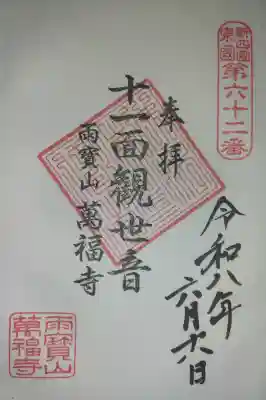 新四国
東国
第六十二番
奉拝
十一面観世音
雨寳山 萬福寺
令和八年
六月十六日
雨寳山
萬福寺